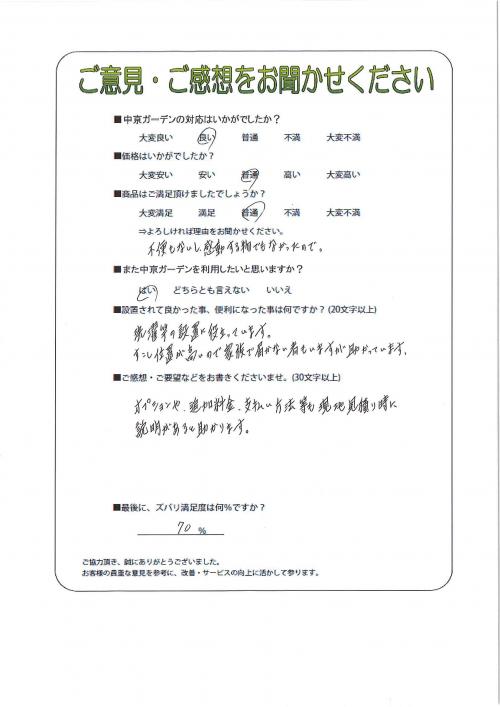 ご意見・ご感想をお聞かせください
■中京ガーデンの対応はいかがでしたか？
大変良い 良い 普通 不満 大変不満
■価格はいかがでしたか？
大変安い 安い 普通 高い 大変高い
■商品はご満足頂けましたでしょうか？
大変満足 満足 普通 不満 大変不満
⇒よろしければ理由をお聞かせください。
不便もないし、感動する物でもなかったので。
■また中京ガーデンを利用したいと思いますか？
はい どちらとも言えない いいえ
■設置されて良かった事、便利になった事は何ですか？(20文字以上)
洗濯竿の設置に役立っています。
すこし位置が高いので家族で届かない者もいますが助かっています。
■ご感想・ご要望などをお書きくださいませ。(30文字以上)
オプションや、追加料金、支払い方法等も現地見積り時に
説明があると助かります。
■最後に、ズバリ満足度は何％ですか？
70 ％
ご協力頂き、誠にありがとうございました。
お客様の貴重な意見を参考に、改善・サービスの向上に活かして参ります。